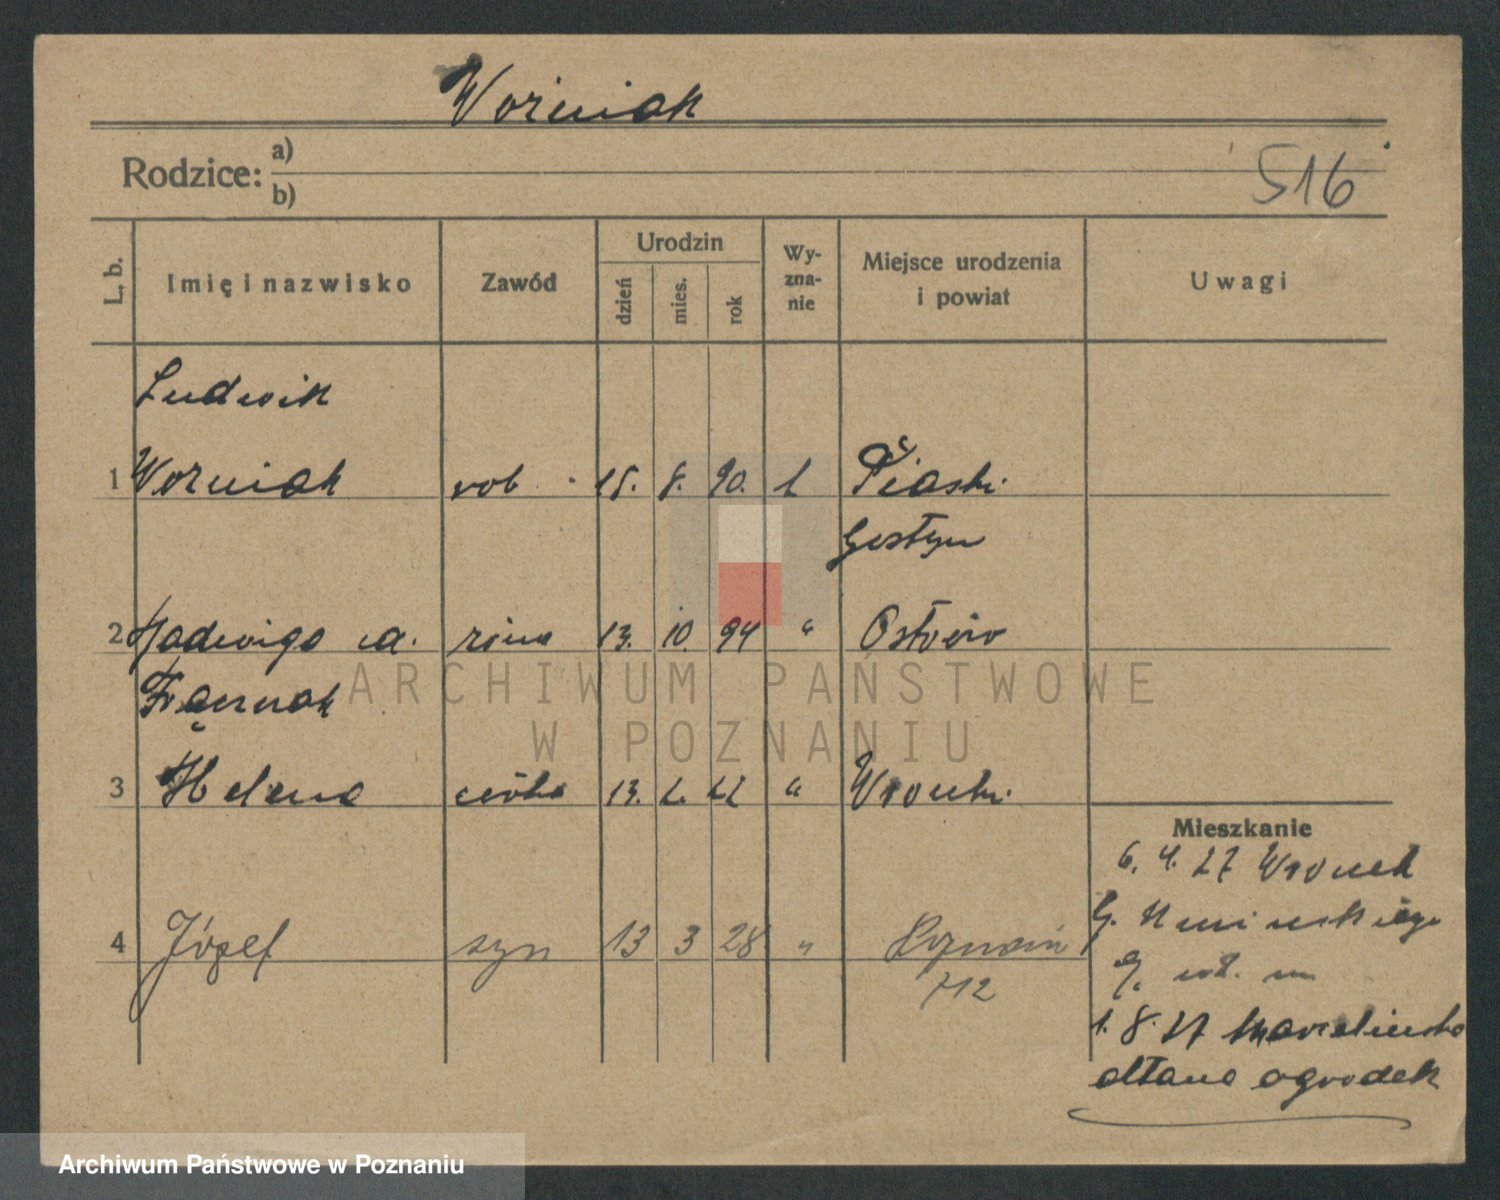 Woźniak
Rodzice: a)
b)
516
L. b. Imię i nazwisko Zawód Urodzin dzień mies. rok Wy-zna-nie Miejsce urodzenia i powiat Uwagi
Ludwik
1 Woźniak rob. 15. 8. 90. Piaski
Gostyń
2 Jadwiga żona 13. 10. 94 " Ostrów
3 Helena córka 13. 2. 22 " Wronki
Mieszkanie
6. 4. 27 Wronek
4 Józef syn 13 3 28 " Poznań
712
1. 8. 27 Marcelińska
altana ogródek
ARCHIWUM PAŃSTWOWE
W POZNANIU
Archiwum Państwowe w Poznaniu